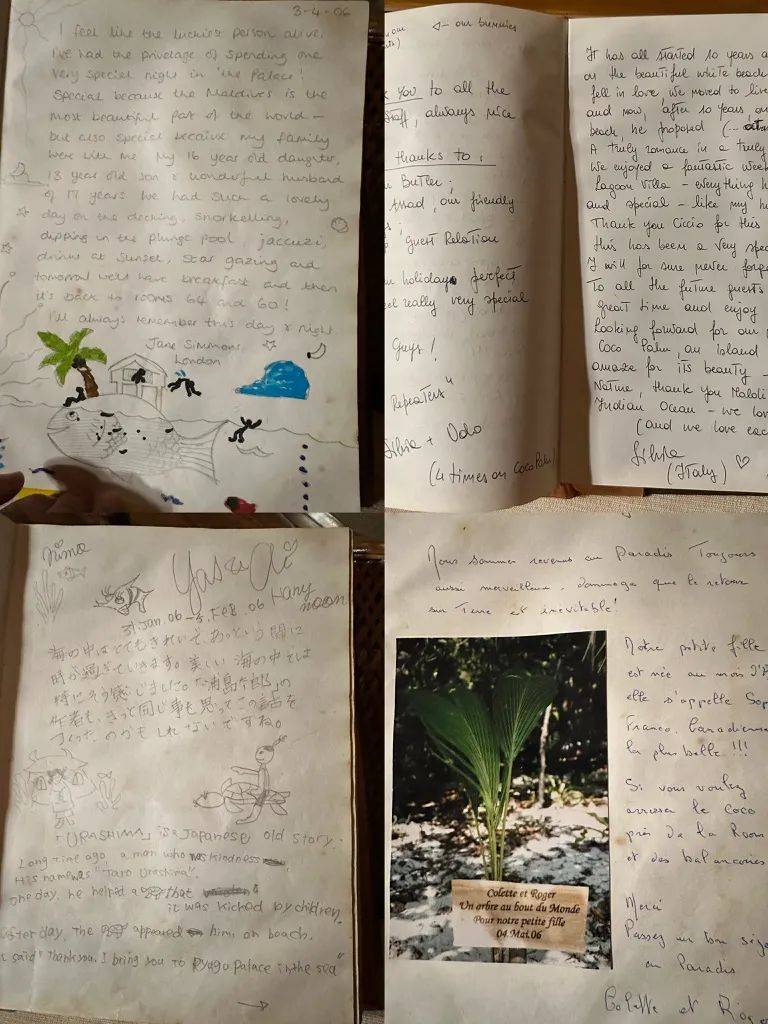 3-4-06
I feel like the luckiest person alive.
I've had the privelage of spending one
very special night in 'the Palace'!
Special because the Maldives is the
most beautiful part of the world -
but also special because my family
were with me. My 16 year old daughter,
13 year old son & wonderful husband
of 17 years. We had such a lovely
day on the decking, snorkelling,
dipping in the plunge pool, jaccuzi,
drinks at sunset, star gazing and
tomorrow we'll have breakfast and then
it's back to rooms 64 and 60!
I'll always remember this day & night.
Jane Simmons
London
our bunnies
You to all the
Staff, always nice
thanks to:
Butler;
Assad, our friendly
Guest Relation
holiday perfect
feel really very special
Guys!
"Repeaters"
Silvia + Udo
(4 times on Coco Palm)
It has all started 10 years a
on the beautiful white beach
fell in love we moved to live
and now, after 10 years, on
beach, he proposed (...
A truly romance in a truly
We enjoyed a fantastic week
Lagoon Villa - everything h
and special - like my h
Thank you Ciccio for this
this has been a very spec
I will for sure never forge
To all the future guests
great time and enjoy
Looking forward for our
Coco Palm, an island
amaze for its beauty -
Nature, thank you Maldi
Indian Ocean - we lov
(and we love eac
Silvia
(Italy)
Yasu
31 Jan. 06 - 3. FEB. 06 Hany
moon
海の中はとてもきれいで、あっという間に
時が過ぎていきます。美しい海の中では
特にそう感じました。「浦島太郎」の
作者も、きっと同じ事を思ってこの話を
つくったのかもしれないですね。
「URASHIMA」 is a Japanese old story.
Long time ago, a man who was kindness
His name was "Taro Urashima".
One day, he helped a that
it was kicked by children.
After day, the appeared him, on beach.
said "Thank you. I bring you to Ryugo Palace in the sea"
Nous sommes revenus au Paradis Toujours
aussi merveilleux, dommage que le retour
sur Terre est inevitable!
Notre petite fille
est née au mois d'A
elle s'appelle Sop
Franco, Canadienne
la plus belle !!!
Si vous voulez
arroser le coco
près de la Room
et des balancoires
Colette et Roger
Un arbre au bout du Monde
Pour notre petite fille
04.Mai.06
Merci
Passez un bon séj
au Paradis
Colette et Roger